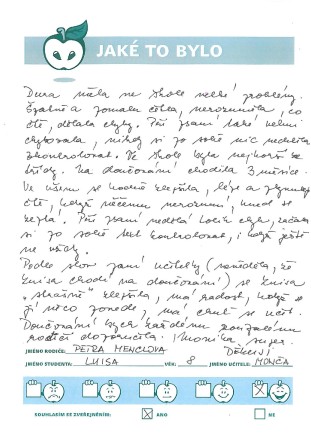 JAKÉ TO BYLO
Dcera měla ve škole velké problémy.
Špatně a pomalu četla, nerozuměla, co
čte, dělala chyby. Při psaní také velmi
chybovala, nikdy si po sobě nic nechtěla
zkontrolovat. Ve škole byla nejhorší ze
třídy. Na doučování chodila 3 měsíce.
Ve všem se hodně zlepšila, lépe a plynuleji
čte, když něčemu nerozumí, umí se
zeptá. Při psaní nedělá tolik chyb, začala
si po sobě text kontrolovat, i když ještě
ne vždy.
Podle slov paní učitelky (nevěděla, že
Luisa chodí na doučování) se Luisa
"strašně" zlepšila, má radost, když se
jí něco povede, má chuť se učit.
Doučování bych každému zoufalému
rodiči doporučila. Monika super.
Děkuji
JMÉNO RODIČE: PETRA MENCLOVÁ
JMÉNO STUDENTA: LUISA VĚK: 8 JMÉNO UČITELE: MONČA
SOUHLASÍM SE ZVEŘEJNĚNÍM: ANO NE